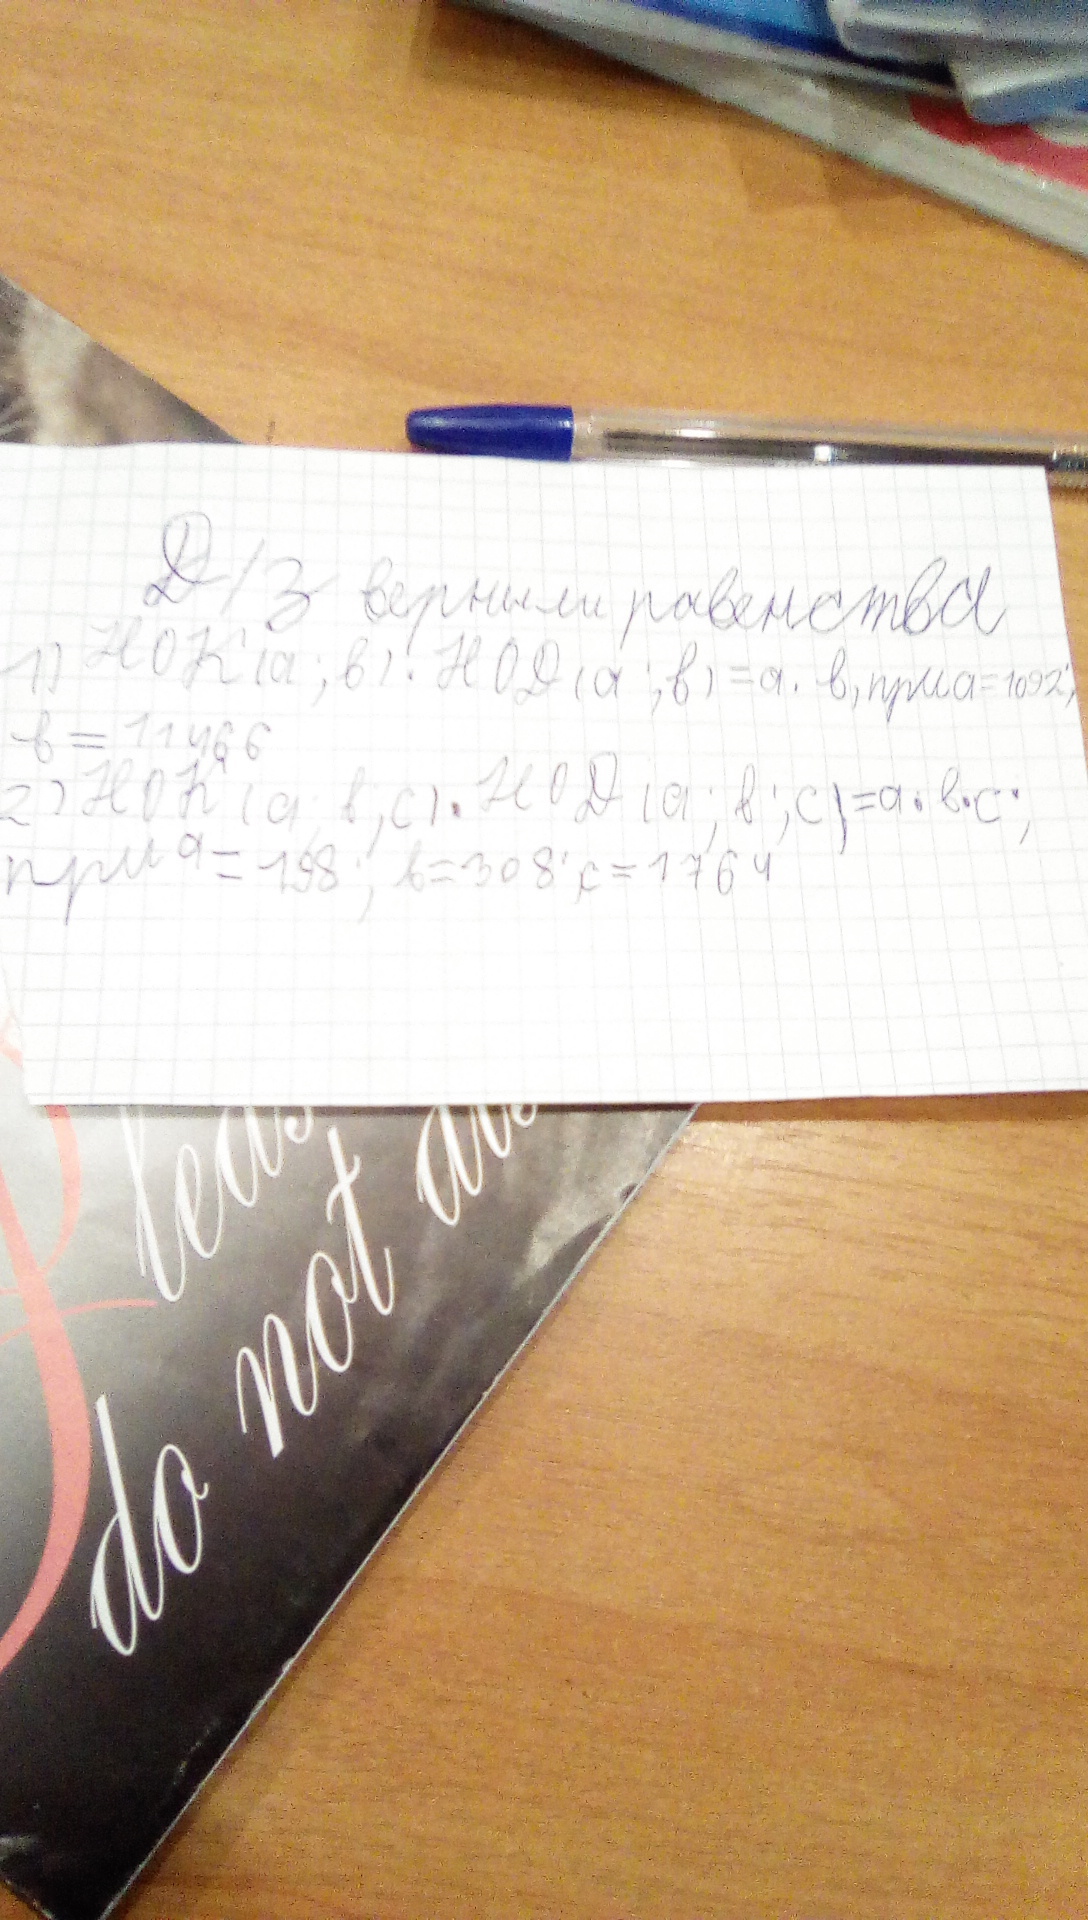 Д/З верны ли равенства
1) НОК(а; в) · НОД(а; в) = а · в, при а = 1092;
в = 11466
2) НОК(а; в; с) · НОД(а; в; с) = а · в · с;
при а = 198; в = 308; с = 1764
leas
do not dis